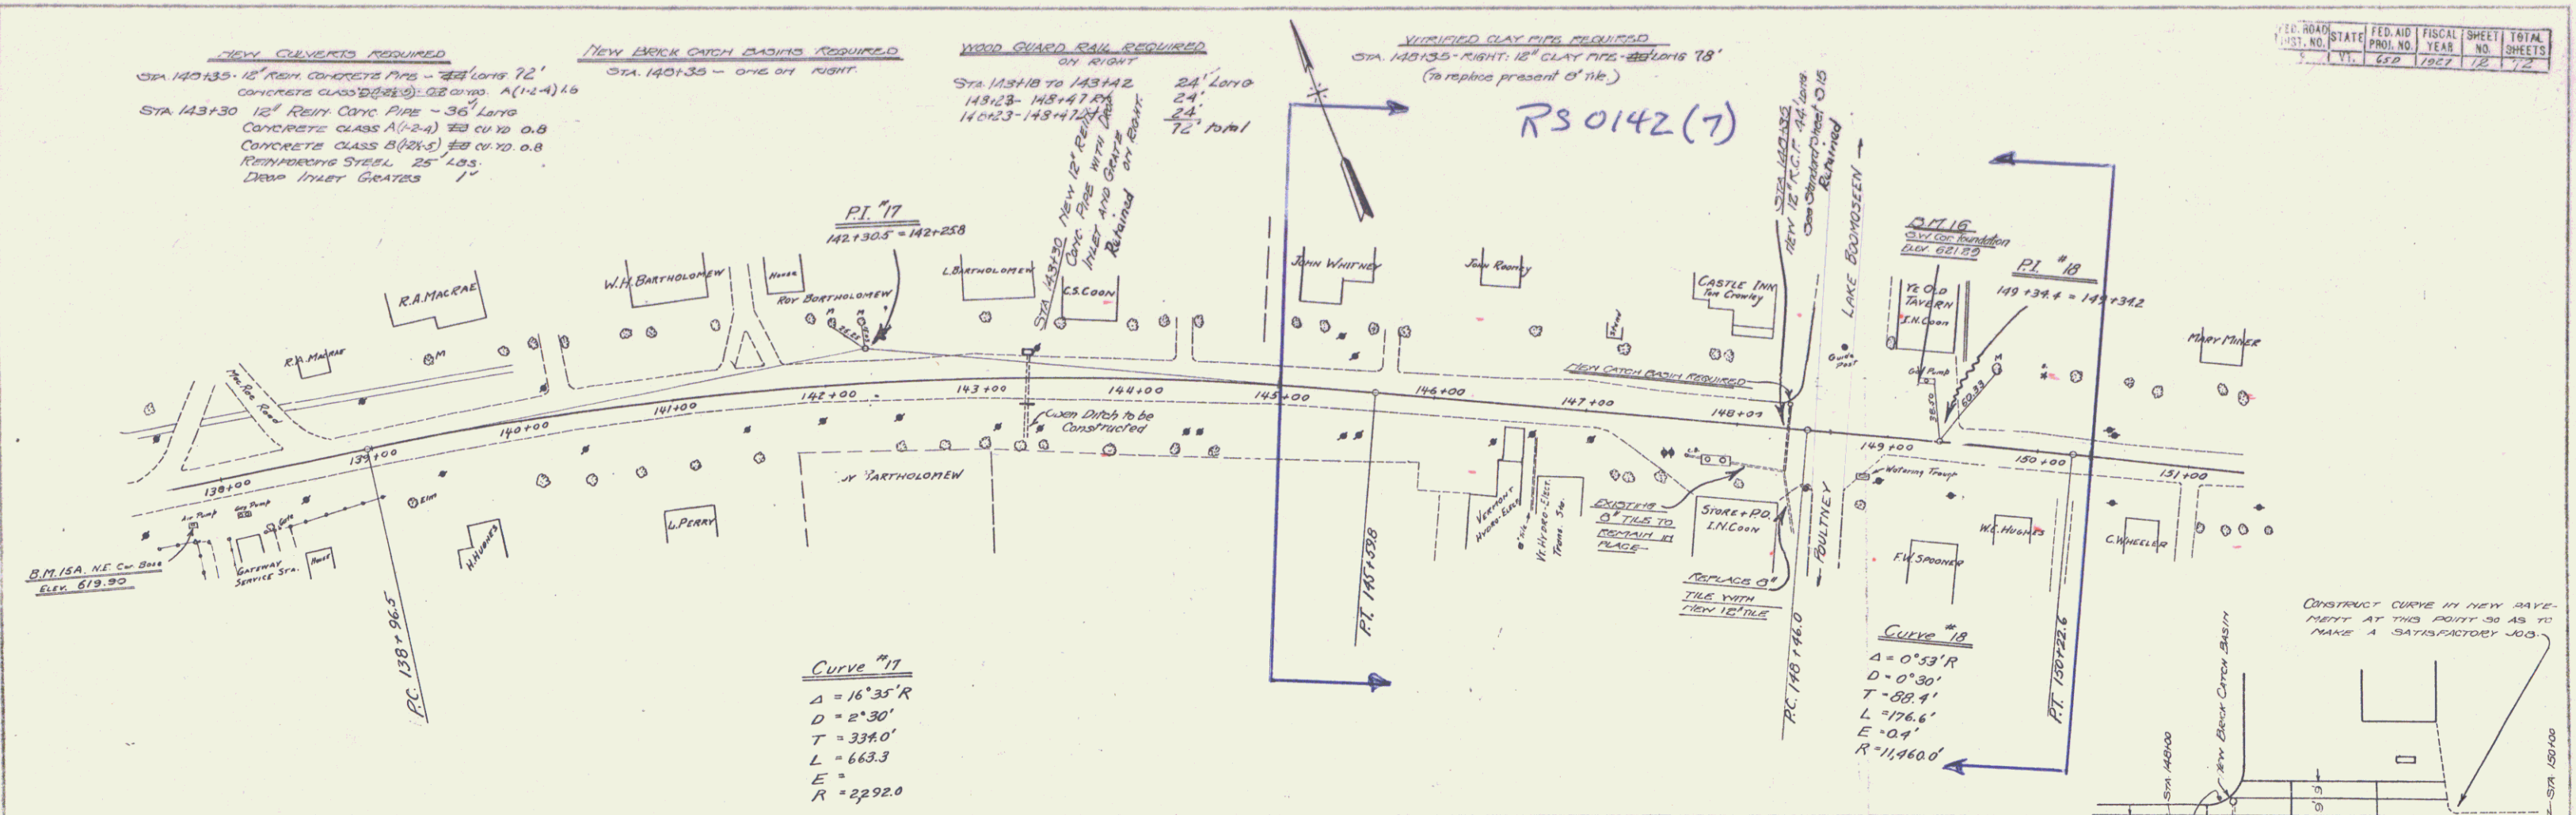 NEW CULVERTS REQUIRED
STA. 148+35 - 12" REIN. CONCRETE PIPE - 44' LONG. 72'
CONCRETE CLASS A(1-2-4) 1.6
STA. 143+30 12" REIN. CONC. PIPE - 36' LONG
CONCRETE CLASS A(1-2-4) CU. YD. 0.8
CONCRETE CLASS B(1-2½-5) CU. YD. 0.8
REINFORCING STEEL 25 LBS.
DROP INLET GRATES 1
NEW BRICK CATCH BASINS REQUIRED
STA. 148+35 - ONE ON RIGHT.
WOOD GUARD RAIL REQUIRED
ON RIGHT
STA. 143+18 TO 143+42 24' LONG
148+23 - 148+47 Rt. 24'
148+23 - 148+47 24
72' total
VITRIFIED CLAY PIPE REQUIRED
STA. 148+35 - RIGHT: 12" CLAY PIPE - LONG 78'
(To replace present 8" Tile)
RS 0142 (7)
FED. ROAD DIST. NO. STATE FED. AID PROJ. NO. FISCAL YEAR SHEET NO. TOTAL SHEETS
VT. 65D 1927 12 72
P.I. #17
142+30.5 = 142+25.8
STA. 143+30 NEW 12" REIN.
CONC. PIPE WITH DROP
INLET AND GRATE
Retained ON RIGHT.
STA. 148+35
NEW 12" R.C.P. 44' LONG.
See Standard Sheet D15
Retained
LAKE BOOMOSEEN
B.M. 16
S.W. Cor. Foundation
ELEV. 621.89
P.I. #18
149+34.4 = 149+34.2
R.A. MACRAE
R.A. MACRAE
Mac Rae Road
W.H. BARTHOLOMEW
House
ROY BORTHOLOMEW
L. BARTHOLOMEW
C.S. COON
JOHN WHITNEY
John Rooney
CASTLE INN
Tom Crowley
Stand
Guide post
YE OLD
TAVERN
I.N. Coon
Gas Pump
38.50
60.93
MARY MINER
M
NEW CATCH BASIN REQUIRED
138+00
139+00
140+00
141+00
142+00
143+00
144+00
145+00
146+00
147+00
148+00
149+00
150+00
151+00
Open Ditch to be
Constructed
Air Pump
Gas Pump
Gate
Elm
GATEWAY
SERVICE STA.
House
B.M. 15A. N.E. Cor. Base
ELEV. 619.90
H. HUGHES
L. PERRY
BARTHOLOMEW
VERMONT
HYDRO-ELECT.
8" tile
Vt. HYDRO-ELECT.
Trans. Sta.
EXISTING
8" TILE TO
REMAIN IN
PLACE
STORE + P.O.
I.N. COON
REPLACE 8"
TILE WITH
NEW 12" TILE
POULTNEY
Watering Trough
F.W. SPOONER
W.E. HUGHES
C. WHEELER
P.C. 138+96.5
P.T. 145+59.8
P.C. 148+46.0
P.T. 150+22.6
Curve #17
Δ = 16°35' R
D = 2°30'
T = 334.0'
L = 663.3
E =
R = 2292.0
Curve #18
Δ = 0°53' R
D = 0°30'
T = 88.4'
L = 176.6'
E = 0.4'
R = 11,460.0'
CONSTRUCT CURVE IN NEW PAVE-
MENT AT THIS POINT SO AS TO
MAKE A SATISFACTORY JOB.
NEW BRICK CATCH BASIN
STA. 148+00
9' 9'
STA. 150+00